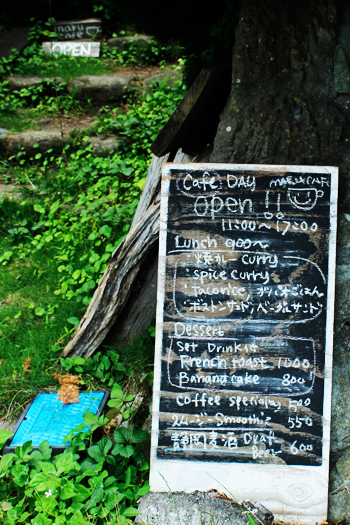 maru
cafe
OPEN
Cafe DAY MARU CAFE
open !!
11:00~17:00
Lunch 900~
・焼カレーCurry
・Spice Curry
・Tacorice
Dessert
Set Drink付
French toast 1000
Banana cake 800
Coffee specialty 500
Smoothie 550
Draft
Beer~ 600